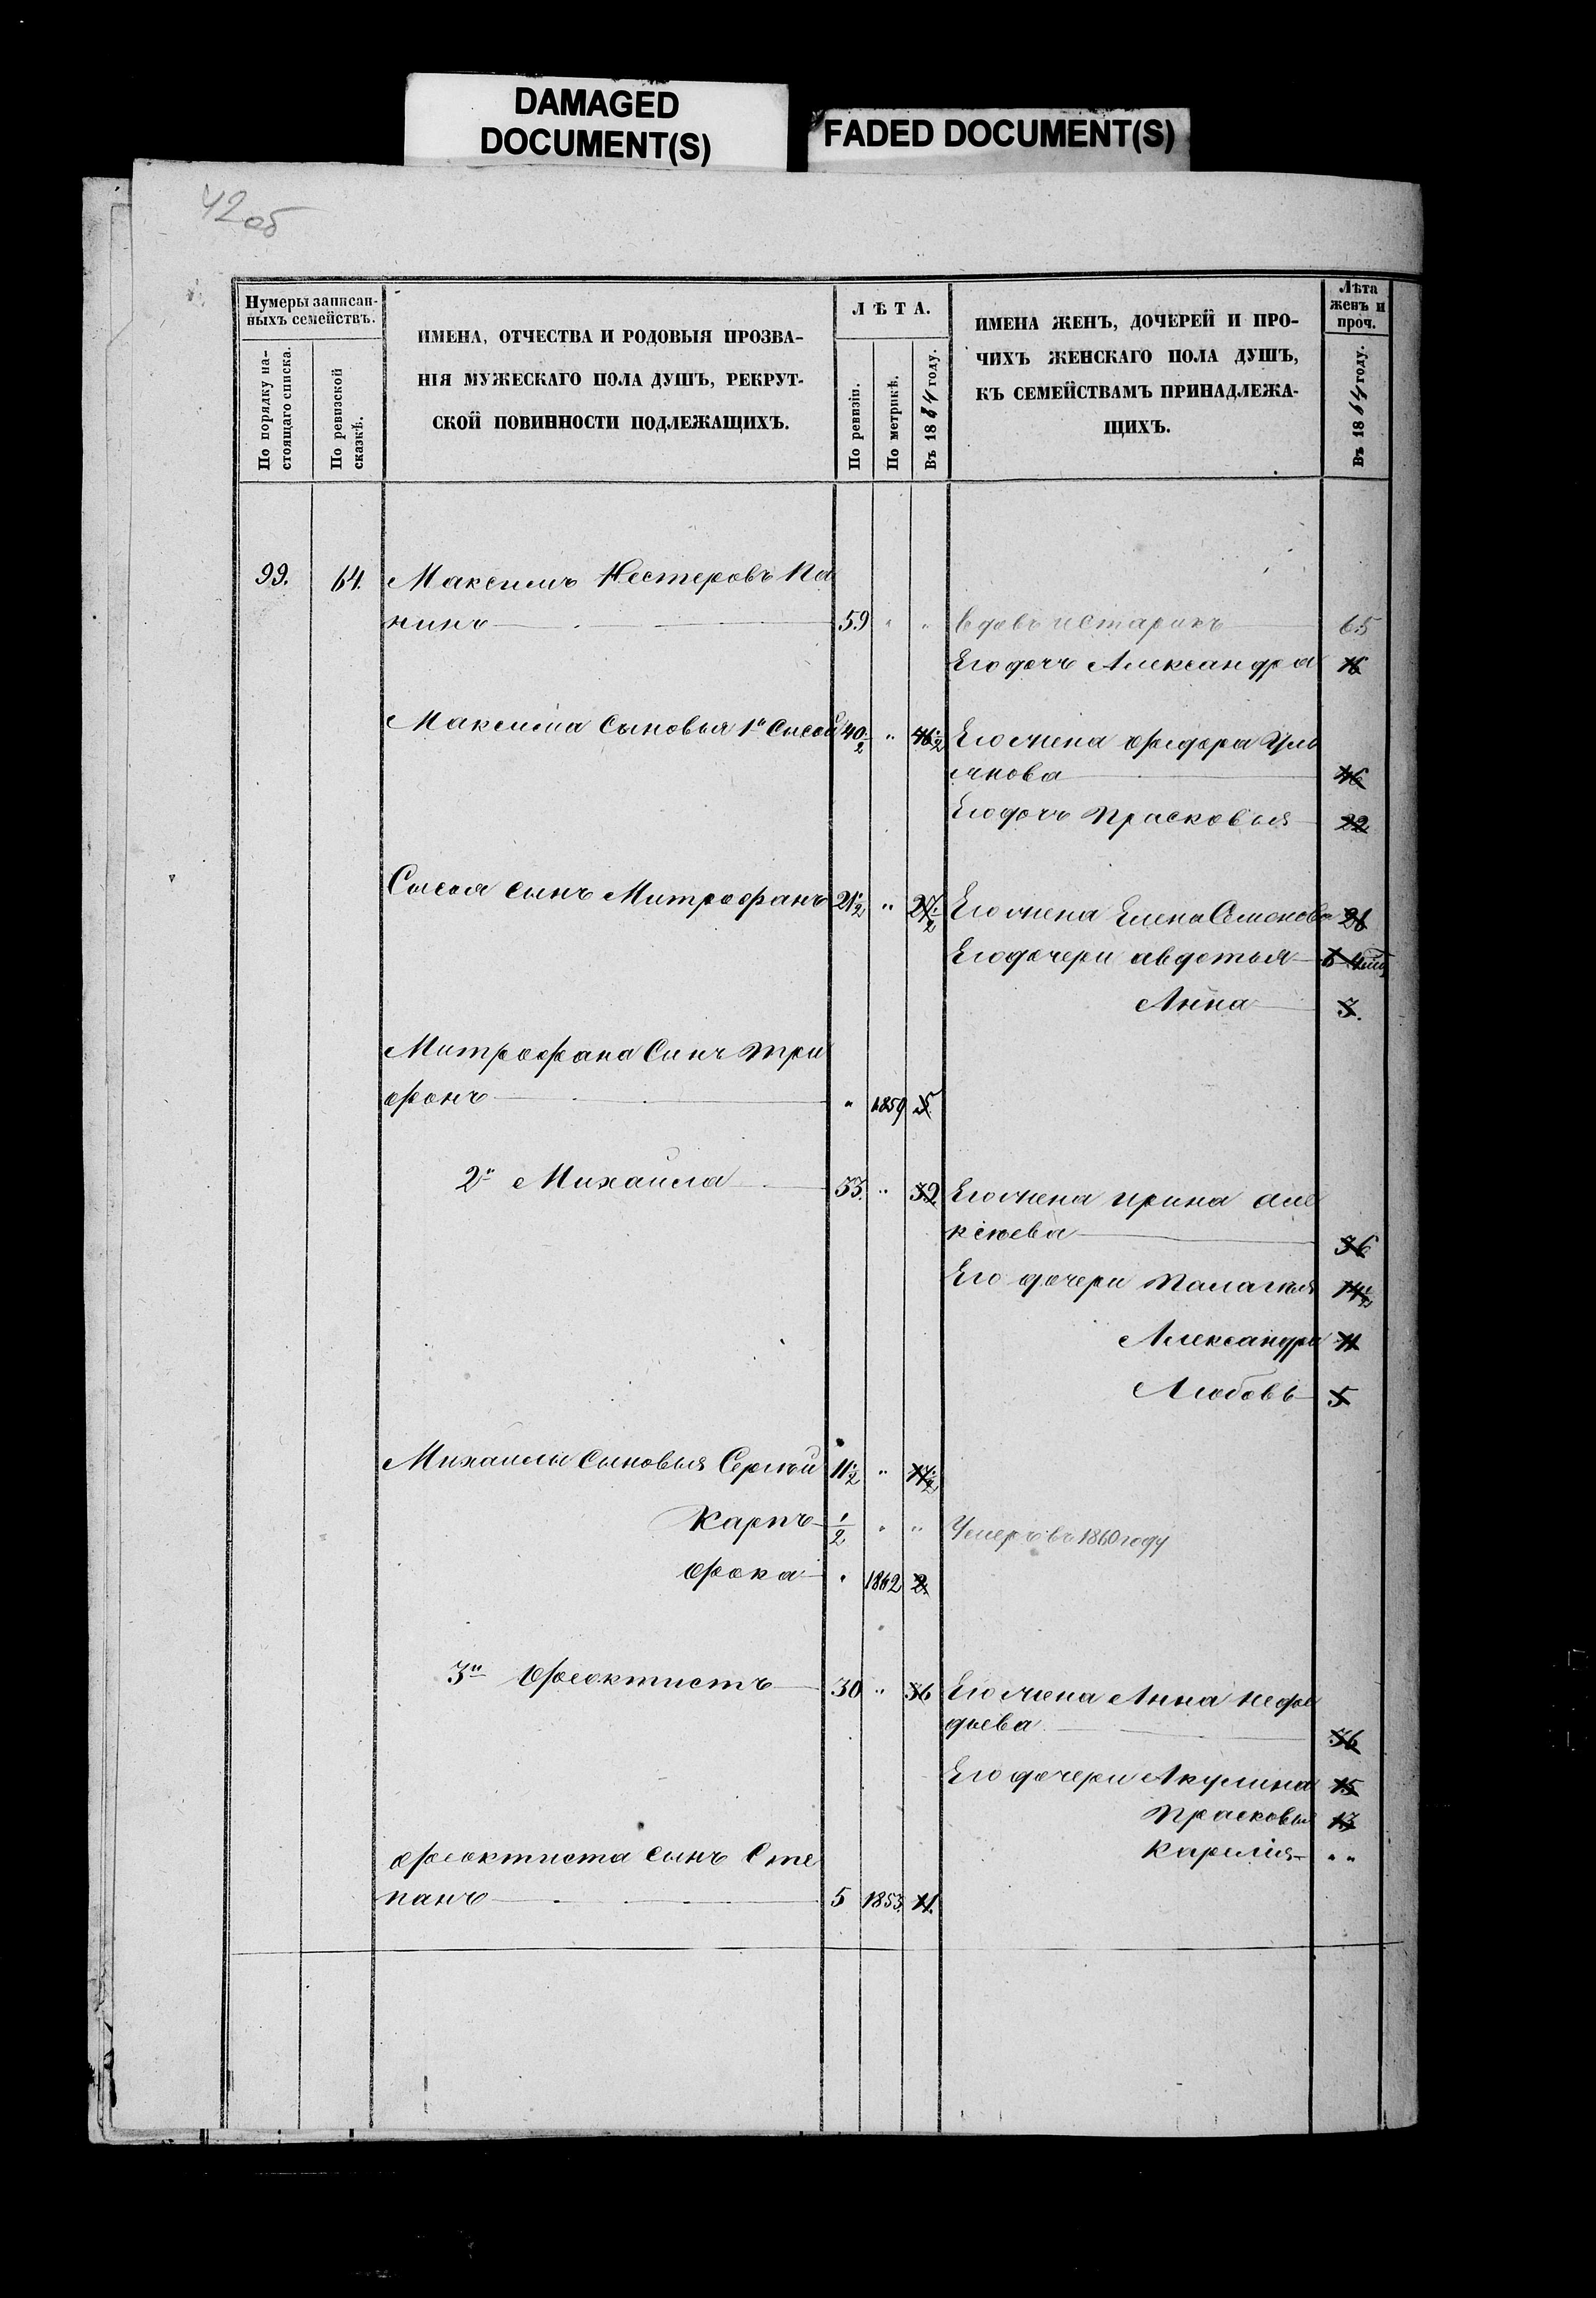 DAMAGED
DOCUMENT(S)
FADED DOCUMENT(S)
42об
Нумеры записан-
ныхъ семействъ.
По порядку на-
стоящаго списка.
По ревизской
сказкѣ.
ИМЕНА, ОТЧЕСТВА И РОДОВЫЯ ПРОЗВА-
НІЯ МУЖЕСКАГО ПОЛА ДУШЪ, РЕКРУТ-
СКОЙ ПОВИННОСТИ ПОДЛЕЖАЩИХЪ.
ЛѢТА.
По ревизіи.
По метрикѣ.
Въ 1864 году.
ИМЕНА ЖЕНЪ, ДОЧЕРЕЙ И ПРО-
ЧИХЪ ЖЕНСКАГО ПОЛА ДУШЪ,
КЪ СЕМЕЙСТВАМЪ ПРИНАДЛЕЖА-
ЩИХЪ.
Лѣта
женъ и
проч.
Въ 1864 году.
99. 64. Максимъ Нестеровъ Па
нинъ 59 " " вдовъ и старикъ 65
Его дочь Александра 16
Максима Сыновья 1й Сысой 40 1/2 " 46 1/2 Его жена Федора Уль
янова 46
Его дочь Прасковья 22
Сысоя сынъ Митрофанъ 21 1/2 " 27 1/2 Его жена Елена Семенова 28
Его дочери авдотья 6
Анна 3.
Митрофана Сынъ Три
фонъ " 1859 5
2й Михаила 33. " 39 Его жена ирина але
ксѣева 36
Его дочери Палагея 14 1/2
Александра 11
Любовь 5
Михаилы сыновья Сергѣй 11 1/2 " 17 1/2
Карпъ 1/2 " " Умеръ въ 1860 году
Фока " 1862 2
3й Феоктистъ 30 " 36 Его жена Анна нефе
дьева 36
Его дочери Акулина 15
Прасковья 13
Феоктиста сынъ Сте
панъ 5 1853. 11.